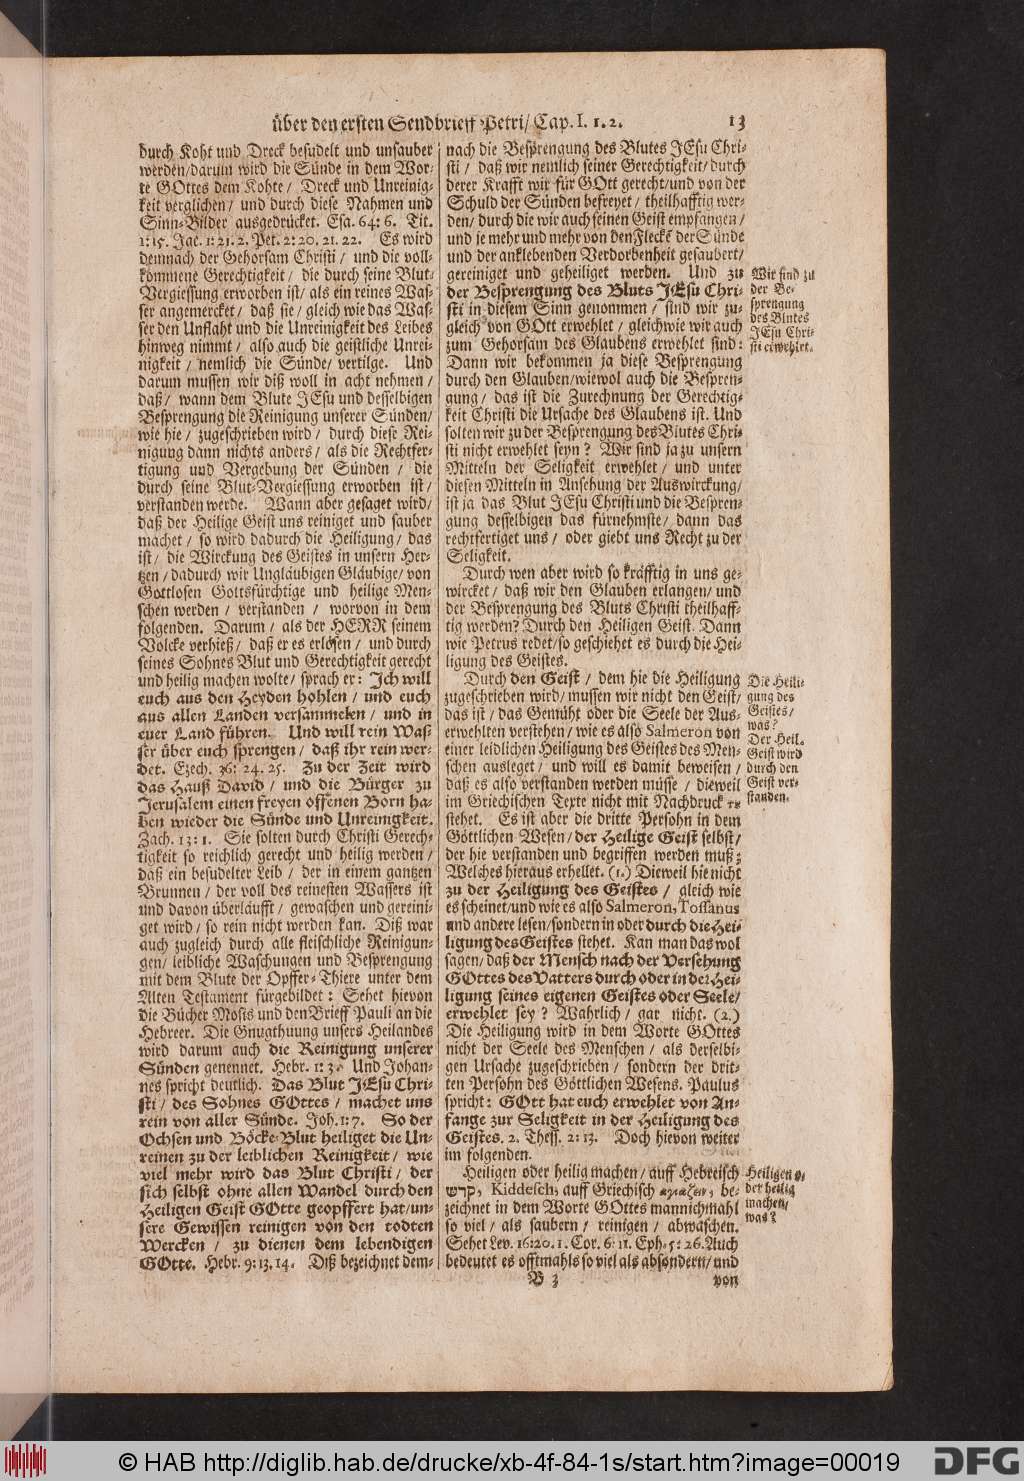 über den ersten Sendbrieff Petri/ Cap. I. 1. 2. 13
durch Koht und Dreck besudelt und unsauber
werden/darum wird die Sünde in dem Wor-
te GOttes dem Kohte / Dreck und Unreinig-
keit verglichen / und durch diese Nahmen und
Sinn-Bilder ausgedrücket. Esa. 64: 6. Tit.
1:15. Jac. 1:21. 2. Pet. 2:20. 21. 22. Es wird
demnach der Gehorsam Christi / und die voll-
kommene Gerechtigkeit / die durch seine Blut-
Vergiessung erworben ist/ als ein reines Was-
ser angemercket/ daß sie / gleich wie das Was-
ser den Unflaht und die Unreinigkeit des Leibes
hinweg nimmt / also auch die geistliche Unrei-
nigkeit / nemlich die Sünde/ vertilge. Und
darum mussen wir diß woll in acht nehmen /
daß/ wann dem Blute JEsu und desselbigen
Besprengung die Reinigung unserer Sünden/
wie hie / zugeschrieben wird / durch diese Rei-
nigung dann nichts anders / als die Rechtfer-
tigung und Vergebung der Sünden / die
durch seine Blut-Vergiessung erworben ist /
verstanden werde. Wann aber gesaget wird/
daß der Heilige Geist uns reiniget und sauber
machet / so wird dadurch die Heiligung / das
ist / die Wirckung des Geistes in unsern Her-
tzen / dadurch wir Ungläubigen Gläubige/ von
Gottlosen Gottsfürchtige und heilige Men-
schen werden / verstanden / worvon in dem
folgenden. Darum / als der HERR seinem
Volcke verhieß / daß er es erlösen / und durch
seines Sohnes Blut und Gerechtigkeit gerecht
und heilig machen wolte/ sprach er: Ich will
euch aus den Heyden hohlen / und euch
aus allen Landen versammelen / und in
euer Land führen. Und will rein Was-
ser über euch sprengen / daß ihr rein wer-
det. Ezech. 36: 24. 25. Zu der Zeit wird
das Hauß David / und die Bürger zu
Jerusalem einen freyen offenen Born ha-
ben wieder die Sünde und Unreinigkeit.
Zach. 13: 1. Sie solten durch Christi Gerech-
tigkeit so reichlich gerecht und heilig werden /
daß ein besudelter Leib / der in einem gantzen
Brunnen / der voll des reinesten Wassers ist
und davon überläufft / gewaschen und gereini-
get wird / so rein nicht werden kan. Diß war
auch zugleich durch alle fleischliche Reinigun-
gen/ leibliche Waschungen und Besprengung
mit dem Blute der Opffer-Thiere unter dem
Alten Testament fürgebildet: Sehet hievon
die Bücher Mosis und den Brieff Pauli an die
Hebreer. Die Gnugthuung unsers Heilandes
wird darum auch die Reinigung unserer
Sünden genennet. Hebr. 1: 3. Und Johan-
nes spricht deutlich. Das Blut JEsu Chri-
sti / des Sohnes GOttes / machet uns
rein von aller Sünde. Joh. 1: 7. So der
Ochsen und Böcke-Blut heiliget die Un-
reinen zu der leiblichen Reinigkeit / wie
viel mehr wird das Blut Christi / der
sich selbst ohne allen Wandel durch den
Heiligen Geist GOtte geopffert hat/un-
sere Gewissen reinigen von den todten
Wercken / zu dienen dem lebendigen
GOtte. Hebr. 9: 13. 14. Diß bezeichnet dem-
nach die Besprengung des Blutes JEsu Chri-
sti / daß wir nemlich seiner Gerechtigkeit/durch
derer Krafft wir für GOtt gerecht/und von der
Schuld der Sünden befreyet / theilhafftig wer-
den/ durch die wir auch seinen Geist empfangen /
und je mehr und mehr von den Fleckē der Sünde
und der anklebenden Verdorbenheit gesaubert/
gereiniget und geheiliget werden. Und zu
der Besprengung des Bluts JEsu Chri-
sti in diesem Sinn genommen / sind wir zu-
gleich von GOtt erwehlet / gleichwie wir auch
zum Gehorsam des Glaubens erwehlet sind:
Dann wir bekommen ja diese Besprengung
durch den Glauben/wiewol auch die Bespren-
gung / das ist die Zurechnung der Gerechtig-
keit Christi die Ursache des Glaubens ist. Und
solten wir zu der Besprengung des Blutes Chri-
sti nicht erwehlet seyn? Wir sind ja zu unsern
Mitteln der Seligkeit erwehlet / und unter
diesen Mitteln in Ansehung der Auswirckung/
ist ja das Blut JEsu Christi und die Bespren-
gung desselbigen das fürnehmste / dann das
rechtfertiget uns / oder giebt uns Recht zu der
Seligkeit.
Durch wen aber wird so kräfftig in uns ge-
wircket / daß wir den Glauben erlangen/ und
der Besprengung des Bluts Christi theilhaff-
tig werden? Durch den Heiligen Geist. Dann
wie Petrus redet/so geschiehet es durch die Hei-
ligung des Geistes.
Durch den Geist / dem hie die Heiligung
zugeschrieben wird/ mussen wir nicht den Geist/
das ist / das Gemüht oder die Seele der Aus-
erwehlten verstehen / wie es also Salmeron von
einer leidlichen Heiligung des Geistes des Men-
schen ausleget / und will es damit beweisen /
daß es also verstanden werden müsse / dieweil
im Griechischen Texte nicht mit Nachdruck τε
stehet. Es ist aber die dritte Persohn in dem
Göttlichen Wesen/ der Heilige Geist selbst/
der hie verstanden und begriffen werden muß:
Welches hieraus erhellet. (1.) Dieweil hie nicht
zu der Heiligung des Geistes / gleich wie
es scheinet/und wie es also Salmeron, Tossanus
und andere lesen/sondern in oder durch die Hei-
ligung des Geistes stehet. Kan man das wol
sagen/ daß der Mensch nach der Versehung
GOttes des Vatters durch oder in der Hei-
ligung seines eigenen Geistes oder Seele/
erwehlet sey? Wahrlich / gar nicht. (2.)
Die Heiligung wird in dem Worte GOttes
nicht der Seele des Menschen / als derselbi-
gen Ursache zugeschrieben / sondern der drit-
ten Persohn des Göttlichen Wesens. Paulus
spricht: GOtt hat euch erwehlet von An-
fange zur Seligkeit in der Heiligung des
Geistes. 2. Thess. 2: 13. Doch hievon weiter
im folgenden.
Heiligen oder heilig machen/ auff Hebreisch
קדש, Kiddesch, auff Griechisch αγιαζειν, be-
zeichnet in dem Worte GOttes mannichmahl
so viel / als saubern / reinigen / abwaschen.
Sehet Lev. 16:20. 1. Cor. 6: 11. Eph. 5: 26. Auch
bedeutet es offtmahls so viel als absondern/ und
B 3 von
Wir sind zu
der Be-
sprengung
des Blutes
JEsu Chri-
sti erwehlet.
Die Heili-
gung des
Geistes/
was?
Der Heil.
Geist wird
durch den
Geist ver-
standen.
Heiligen o-
der heilig
machen/
was?
© HAB http://diglib.hab.de/drucke/xb-4f-84-1s/start.htm?image=00019
DFG